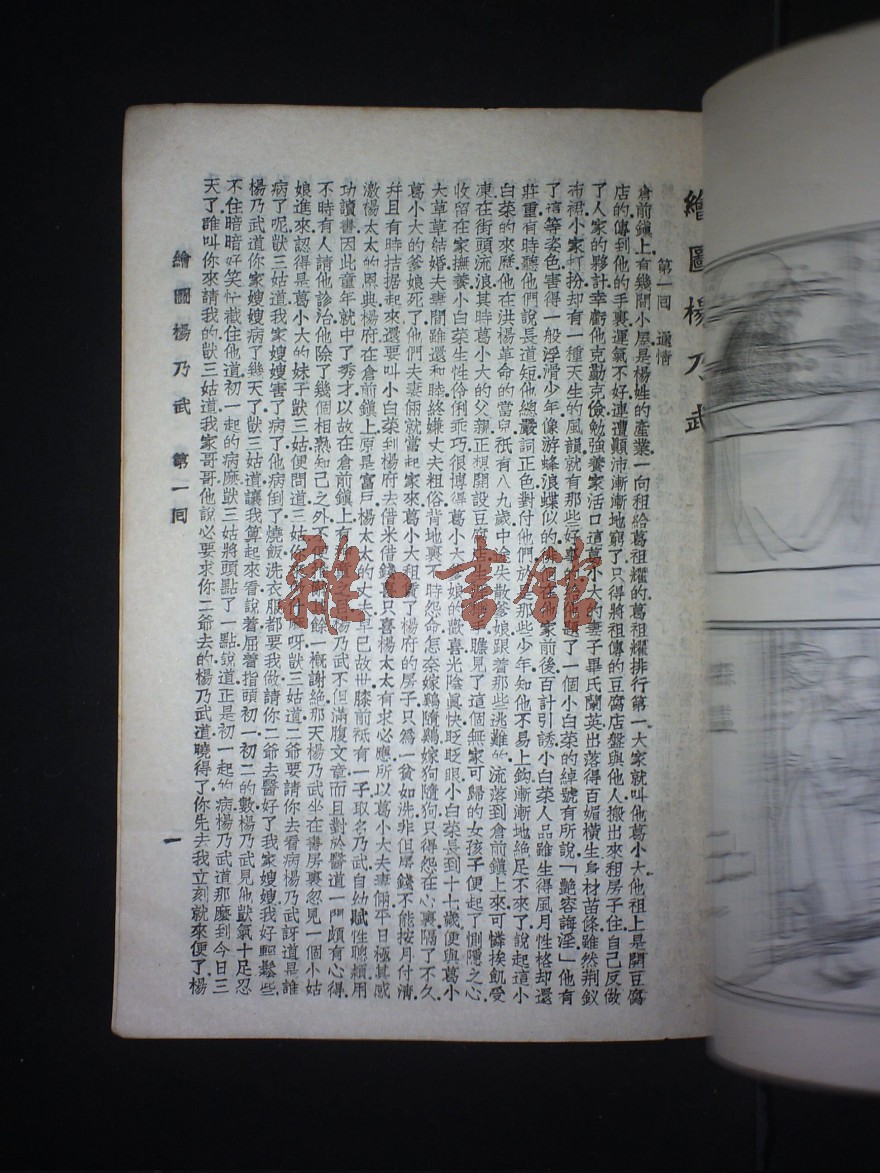 繪圖楊乃武
第一回 通情
倉前鎭上有幾間小屋是楊姓的產業一向租給葛祖燿的葛祖燿排行第一大家就叫他葛小大他祖上是開豆腐
店的傳到他的手裏運氣不好連遭顚沛漸漸地窮了只得將祖傳的豆腐店盤與他人搬出來租房子住自己反做
了人家的夥計幸虧他克勤克儉勉強養家活口這葛小大的妻子畢氏蘭英出落得百媚橫生身材苗條雖然荆釵
布裙小家打扮却有一種天生的風韻就有那些好事 他題了一個小白菜的綽號有所說「艷容誨淫」他有
了這等姿色害得一般浮滑少年像游蜂浪蝶似的 他家前後百計引誘小白菜人品雖生得風月性格却還
莊重有時聽他們說長道短他總嚴詞正色對付他們 那些少年知他不易上鈎漸漸地絶足不來了說起這小
白菜的來歷他在洪楊革命的當兒祇有八九歲中途失散爹娘跟着那些逃難的流落到倉前鎭上來可憐挨飢受
凍在街頭流浪其時葛小大的父親正想開設豆腐店 瞧見了這個無家可歸的女孩子便起了惻隱之心
收留在家撫養小白菜生性伶俐乖巧很博得葛小大爹娘的歡喜光陰眞快眨眨眼小白菜長到十七歲便與葛小
大草草結婚夫妻間雖還和睦終嫌丈夫粗俗背地裏不時怨命怎奈嫁鷄隨鷄嫁狗隨狗只得怨在心裏隔了不久
葛小大的爹娘死了他們夫妻倆就當起家來葛小大租 了楊府的房子只爲一貧如洗非但房錢不能按月付清
幷且有時拮据起來還要叫小白菜到楊府去借米借錢 只喜楊太太有求必應所以葛小大夫妻倆平日極其感
激楊太太的恩典楊府在倉前鎭上原是富戶楊太太的丈夫早已故世膝前祇有一子取名乃武自幼賦性聰穎用
功讀書因此童年就中了秀才以故在倉前鎭上有 楊乃武不但滿腹文章而且對於醫道一門頗有心得
不時有人請他診治他除了幾個相熟知己之外不 餘一槪謝絶那天楊乃武坐在書房裏忽見一個小姑
娘進來認得是葛小大的妹子獃三姑便問道三姑你 什 呀獃三姑道二爺要請你去看病楊乃武訝道是誰
病了呢獃三姑道我家嫂嫂害了病了他病倒了燒飯洗衣服都要我做請你二爺去醫好了我家嫂嫂我好輕鬆些
楊乃武道你家嫂嫂病了幾天了獃三姑道讓我算起來看說着屈着指頭初一初二的數楊乃武見他獃氣十足忍
不住暗暗好笑忙截住他道初一起的病麽獃三姑將頭點了一點說道正是初一起的病楊乃武道那麽到今日三
天了誰叫你來請我的獃三姑道我家哥哥他說必要求你二爺去的楊乃武道曉得了你先去我立刻就來便了楊
繪圖楊乃武 第一回 一
雜·書館